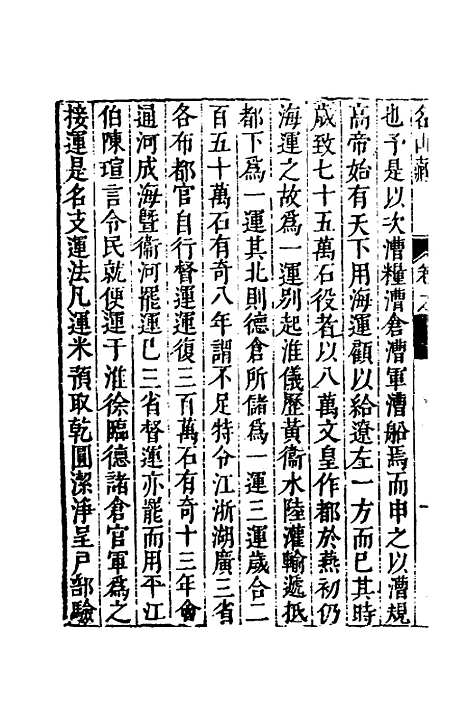 名山藏 卷之
也予是以次漕糧漕倉漕軍漕船焉而申之以漕規
高帝始有天下用海運顧以給遼左一方而已其時
歲致七十五萬石役者以八萬文皇作都於燕初仍
海運之故爲一運別起淮儀歷黃衞水陸灌輸遞抵
都下爲一運其北則德倉所儲爲一運三運歲合二
百五十萬石有奇八年謂不足特分江浙湖廣三省
各布都官自行督運運復三百萬石有奇十三年會
通河成海曁衞河罷運已三省督運亦罷而用平江
伯陳瑄言令民就便運于淮徐臨德諸倉官軍爲之
接運是名支運法凡運米預取乾圓潔淨呈戶部驗